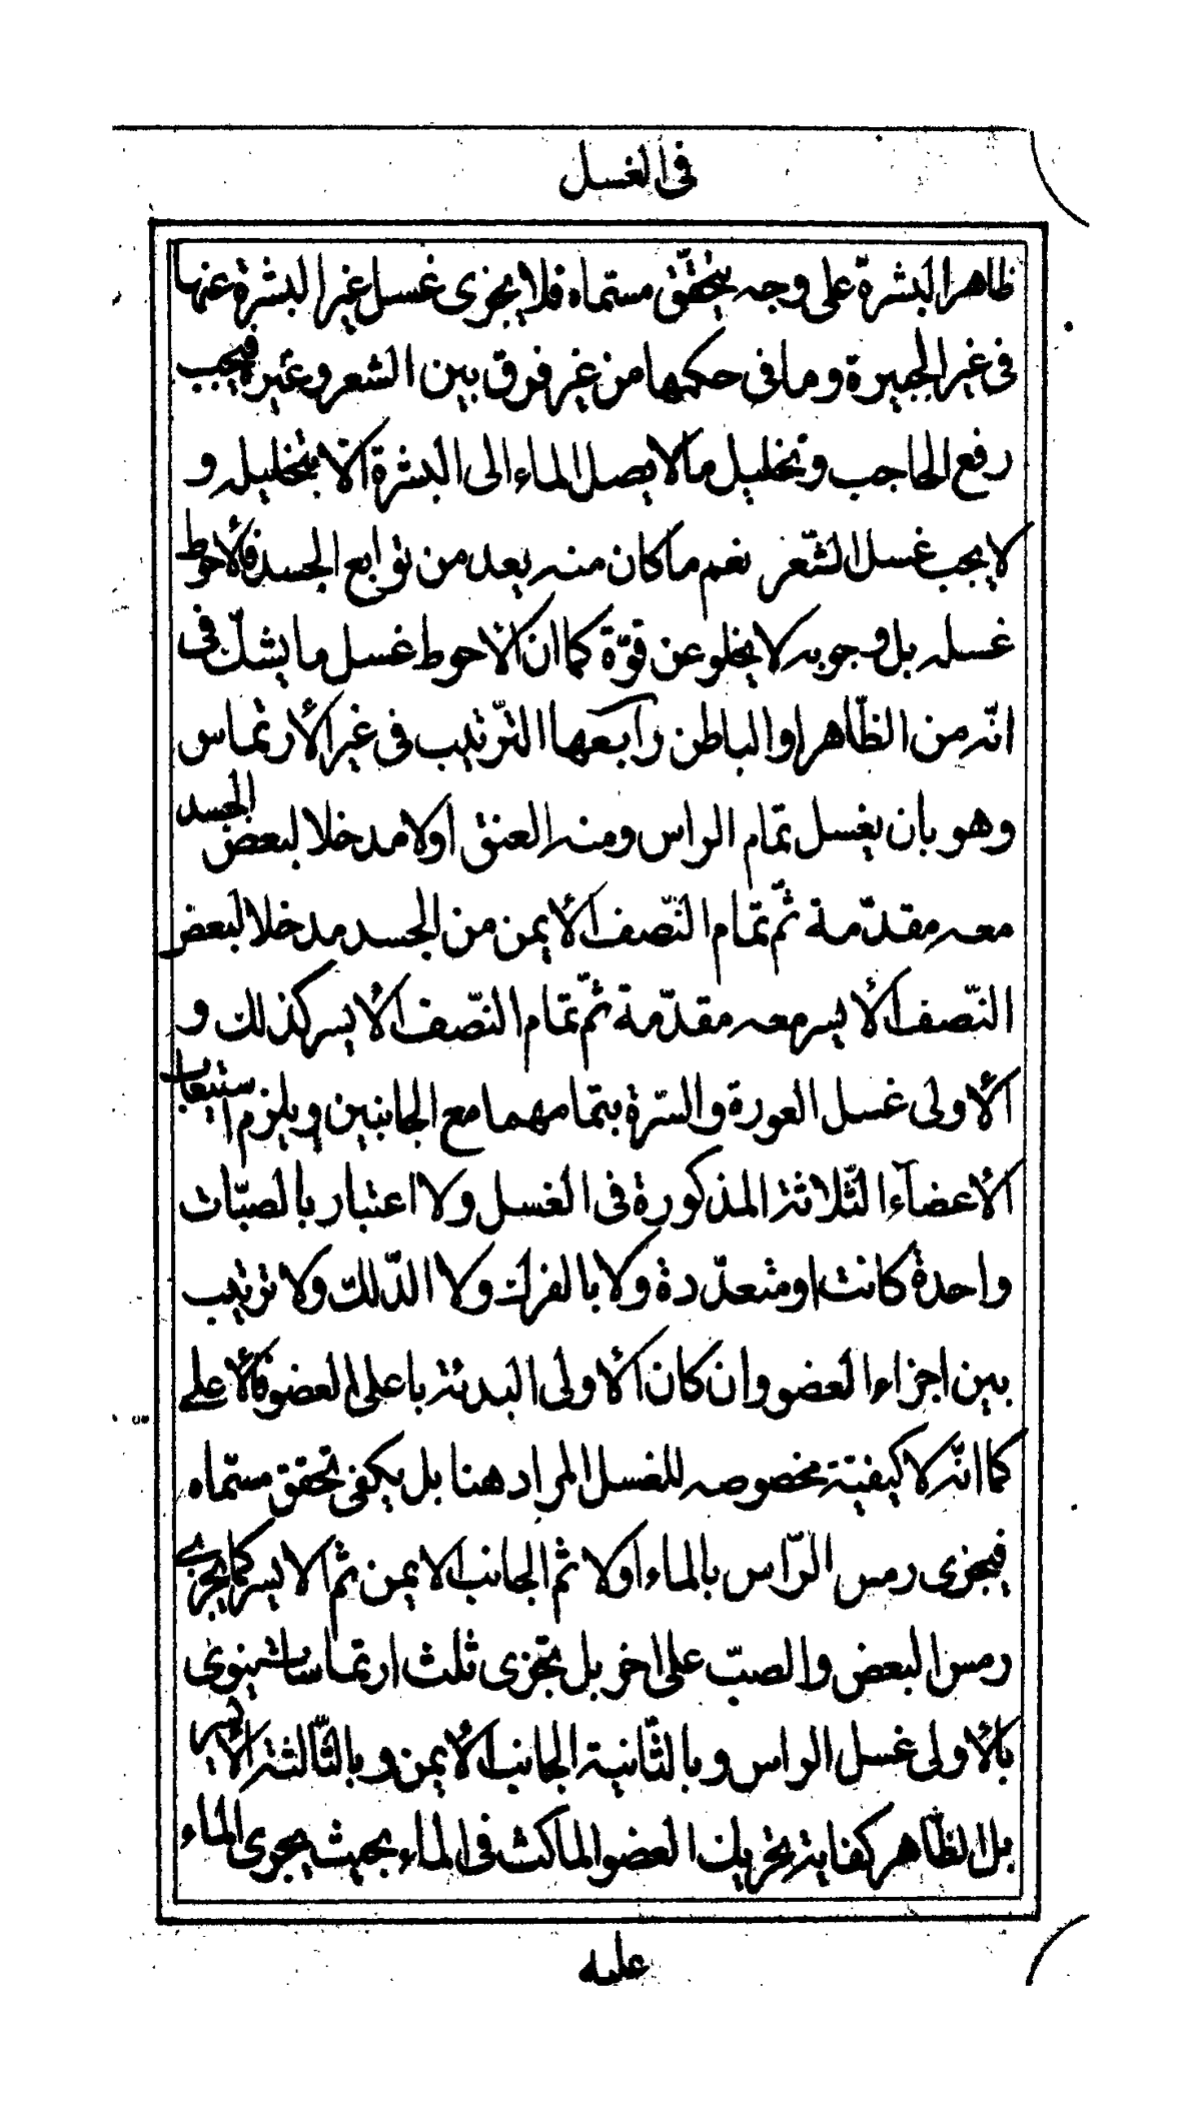 فى الغسل
ظاهر البشرة على وجه يتحقّق مسمّاه فلا يجزى غسل غير البشرة عنها
فى غير الجبيرة وما فى حكمها من غير فرق بين الشعر وغيره فيجب
رفع الحاجب وتخليل ما لا يصل الماء الى البشرة الّا بتخليله و
لا يجب غسل الشّعر نعم ما كان منه يعد من توابع الجسد فالأحوط
غسله بل وجوبه لا يخلو عن قوّة كما ان الأحوط غسل ما يشكّ فى
انّه من الظّاهر او الباطن رابعها التّرتيب فى غير الأرتماس
وهو بان يغسل تمام الراس ومنه العنق اولا مدخلا لبعض الجسد
معه مقدّمة ثمّ تمام النّصف الأيمن من الجسد مدخلا لبعض
النّصف الأيسر معه مقدّمة ثمّ تمام النّصف الأيسر كذلك و
الأولى غسل العورة والسّرة بتمامهما مع الجانبين ويلزم استيعاب
الأعضآء الثّلاثة المذكورة فى الغسل ولا اعتبار بالصبّات
واحدة كانت او متعدّدة ولا بالفرك ولا الدّلك ولا ترتيب
بين اجزاء العضو وان كان الأولى البدئة باعلى العضو فالأعلى
كما انّه لا كيفيّة مخصوصه للغسل المراد هنا بل يكفى تحقق مسمّاه
فيجزى رمس الرّاس بالماء اولا ثم الجانب الايمن ثم الايسر كما يجزى
رمس البعض والصبّ على اخر بل تجزى ثلث ارتماسات ينوى
بالأولى غسل الراس وبالثّانية الجانب الأيمن وبالثّالثة الأيسر
بل الظّاهر كفاية تحريك العضو الماكث فى الماء بحيث يجرى الماء
عليه